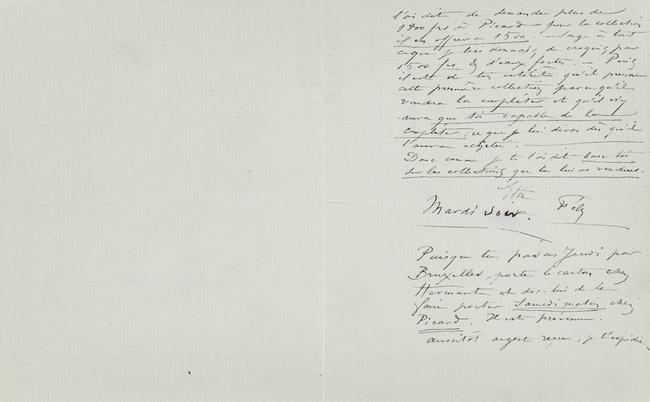 t'ai dit de demander plus de
1800 frs à Picard pour la collection
il en offrira 1500. — Songe à tout
ce que je lui donnais de croquis par
1500 frs & d'eaux fortes. — Puis
il est de ton intérêt qu'il prenne
cette première collection parce qu'il
voudra la compléter et qu'il n'y
aura que toi capable de la
compléter; ce que tu lui diras dès qu'il
l'aura achetée.
Donc comme je te l'ai dit base toi
sur les collections que tu lui as vendues.
Mardi soir. Fély
Puisque tu pars Jeudi par
Bruxelles, porte le carton chez
Hermant et dis-lui de le
faire porter Samedi matin chez
Picard. Il est prévenu.
aussitôt argent reçu, je t'expédie